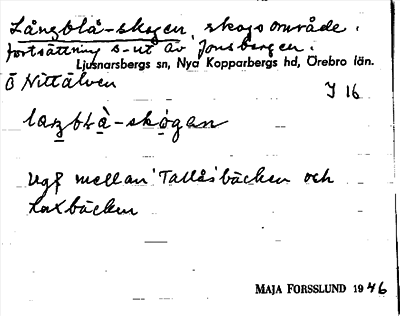 Långblå-skogen, skogsområde,
fortsättning s-ut av Jonsbergen.
Ljusnarsbergs sn, Nya Kopparbergs hd, Örebro län.
Ö Nittälven J 16
laŋblà-skògan
Ugf mellan Tallåsbäcken och
Laxbäcken
MAJA FORSSLUND 1946